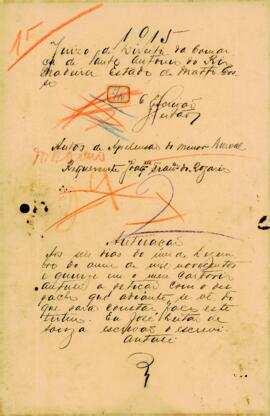 15
1915
Juizo de Direito da Comar
ca de Santo Antonio do Rio
Madeira Estado de Matto Gros
so
Escrivão
Leitão
Autos de Apprehensão do menor
Requerente Joaqᵐ Franᶜᵒ do Rozario
Autuação
Aos seis dias do mez de Dezem
bro do anno de mil novecentos
e quinze em o meu Cartorio
autuei a petição com o des
pacho que adiante se vê do
que para constar faço este
termo. Eu José Leitão de
Souza escrivão o escrevi
Autuei